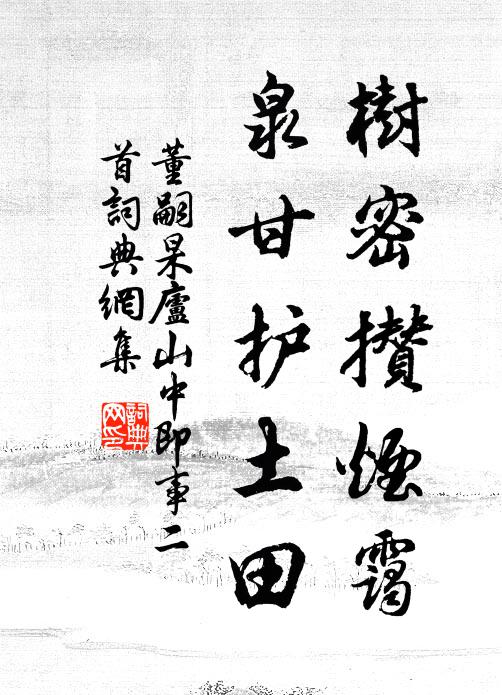 樹密攢煙靄
泉甘护土田
董嗣杲廬山中即事二
首詞典網集
詞典网印